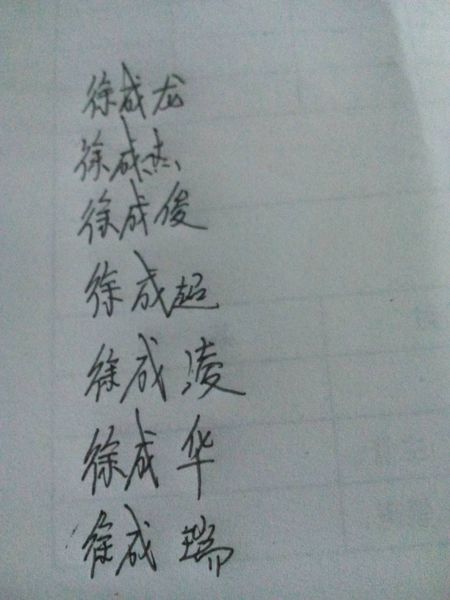 徐成龙
徐成杰
徐成俊
徐成超
徐成凌
徐成华
徐成瑞